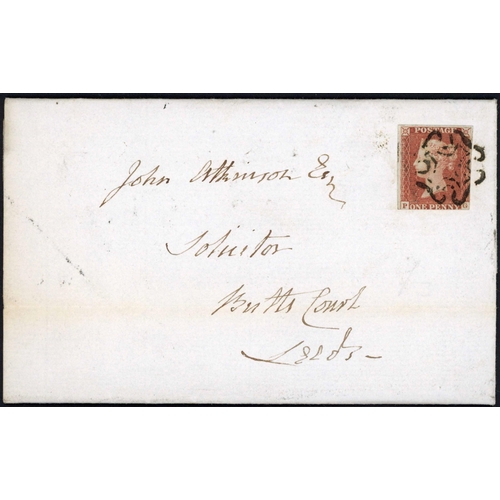 POSTAGE
John Atkinson Esq
Solicitor
Butts Court
Leeds
ONE PENNY